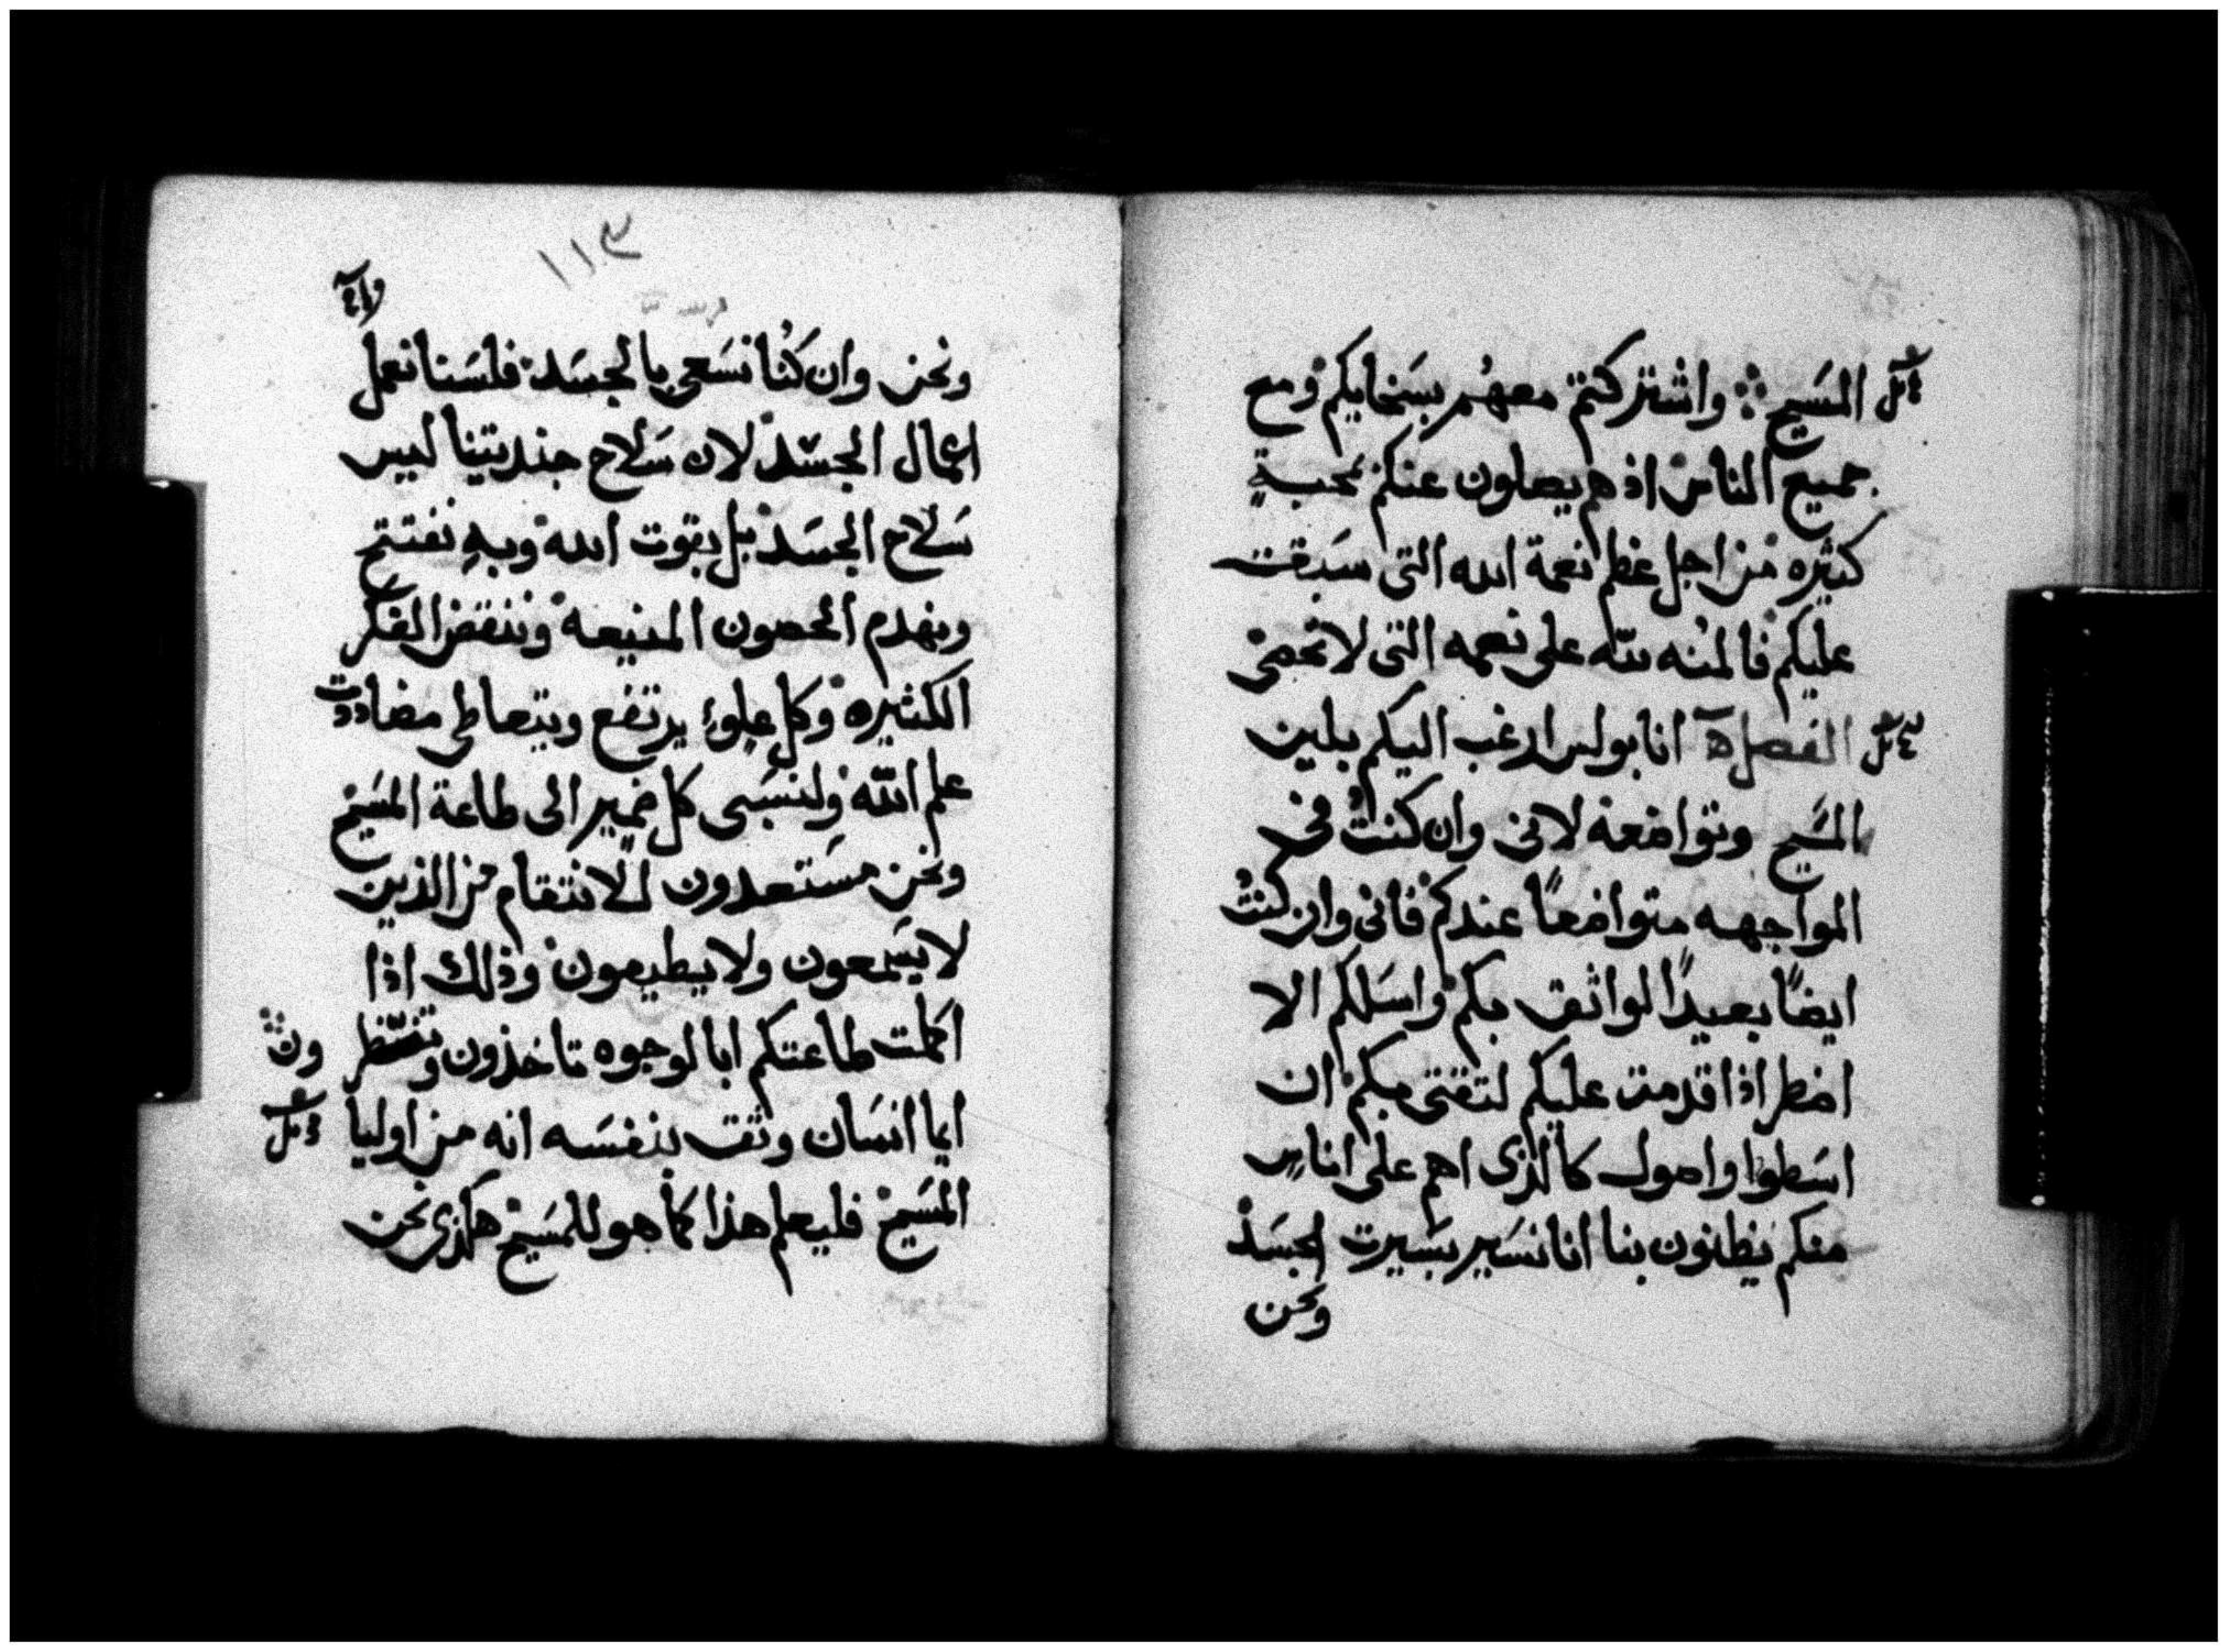 المسَيح واشتركتم معهُم بسَخايكم ومع
جميع الناس اذ هم يصلون عنكم بمحبةٍ
كثيره من اجل عظم نعمة الله التى سَبقت
عليكم فالمنُه لله على نعمه التى لا تحصى
الفصل انا بولس ارغب اليكم بلين
المسَيح وتواضعه لانى وان كنتُ فى
المواجهه متواضعاً عندكم فانى وان كنتُ
ايضاً بعيداً لواثق بكم واسَلكم الا
اضطر اذا قدمت عليكم لثقتى بكم ان
اسَطوا واصول كالذى اهم على اناسٍ
منكم يظنون بنا انا نسَير بسَيرت الجسَد
ونحن
١١٣
ونحن وان كنُا نسَعى بالجسَد فلسَنا نعمل
اعمال الجسَد لان سَلاح جنديتنا ليس
سَلاح الجسَد بل بقوت الله وبهِ نفتتح
ونهدم الحصون المنيعه وننقض الفكر
الكثيره وكل علوءٍ يرتفع ويتعاطى مضاددت
علم الله ولنسَبى كل ضميرٍ الى طاعة المسَيح
ونحن مسَتعدون للانتقام من الذين
لا يسَمعون ولا يطيعون وذلك اذا
اكملت طاعتكم ابالوجوه تاخذون وتنظر ون
ايما انسَان وثق بنفسَه انه من اوليا
المسَيح فليعلم هذا كما هو للمسَيح هكذى نحن